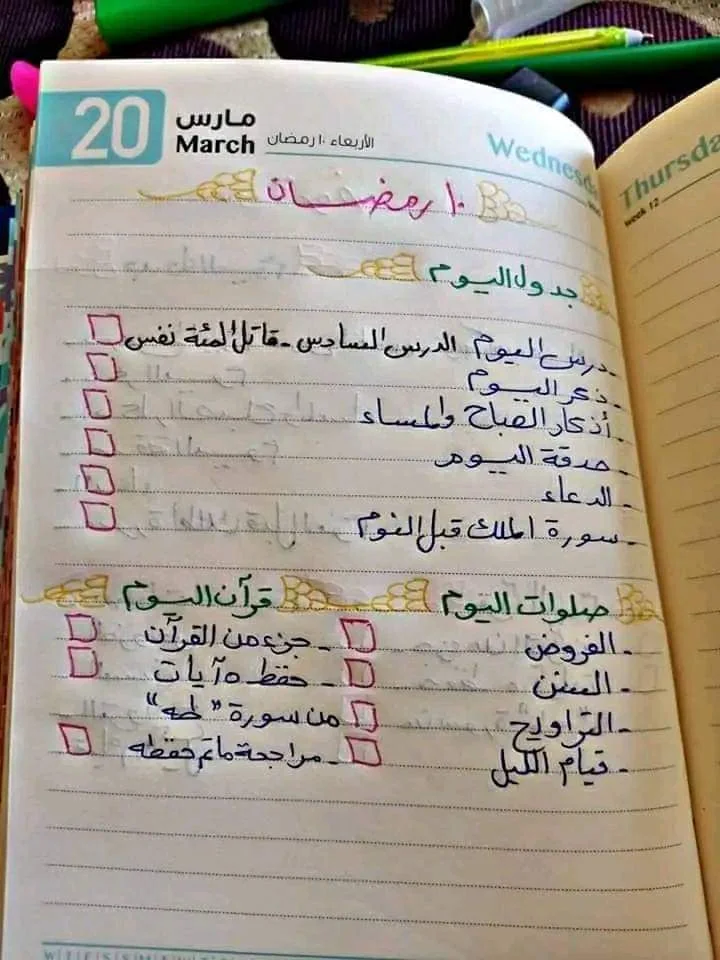 20 مارس
March الأربعاء ١٠ رمضان
Wednesd
Thursda
week 12
١٠ رمضـــان
جدول اليـــوم
- درس اليوم الدرس السادس - قاتل المئة نفس
- ذكر اليـــوم
- أذكار الصباح والمساء
- صدقة اليـــوم
- الدعاء
- سورة الملك قبل النوم
صلوات اليوم
- الفروض
- السنن
- التراويح
- قيام الليل
قرآن اليوم
- جزء من القرآن
- حفظ ٥ آيات
من سورة "طه"
- مراجعة ماتم حفظه